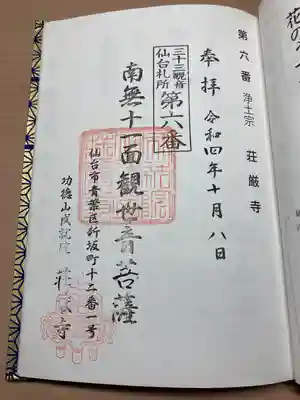 第六番 浄土宗 荘厳寺
奉拝 令和四年十月八日
三十三観音
仙台札所
第六番
南無十一面観世音菩薩
仙台市青葉区新坂町十二番一号
功徳山成就院 荘厳寺